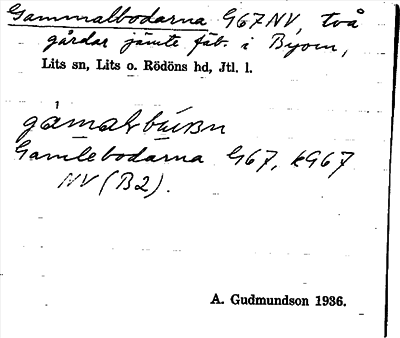 Gammalbodarna G67NV, två
gårdar jämte fäb. i Byom,
Lits sn, Lits o. Rödöns hd, Jtl. l.
Gamlebodarna G67, kG67
NV (B2).
A. Gudmundson 1936.